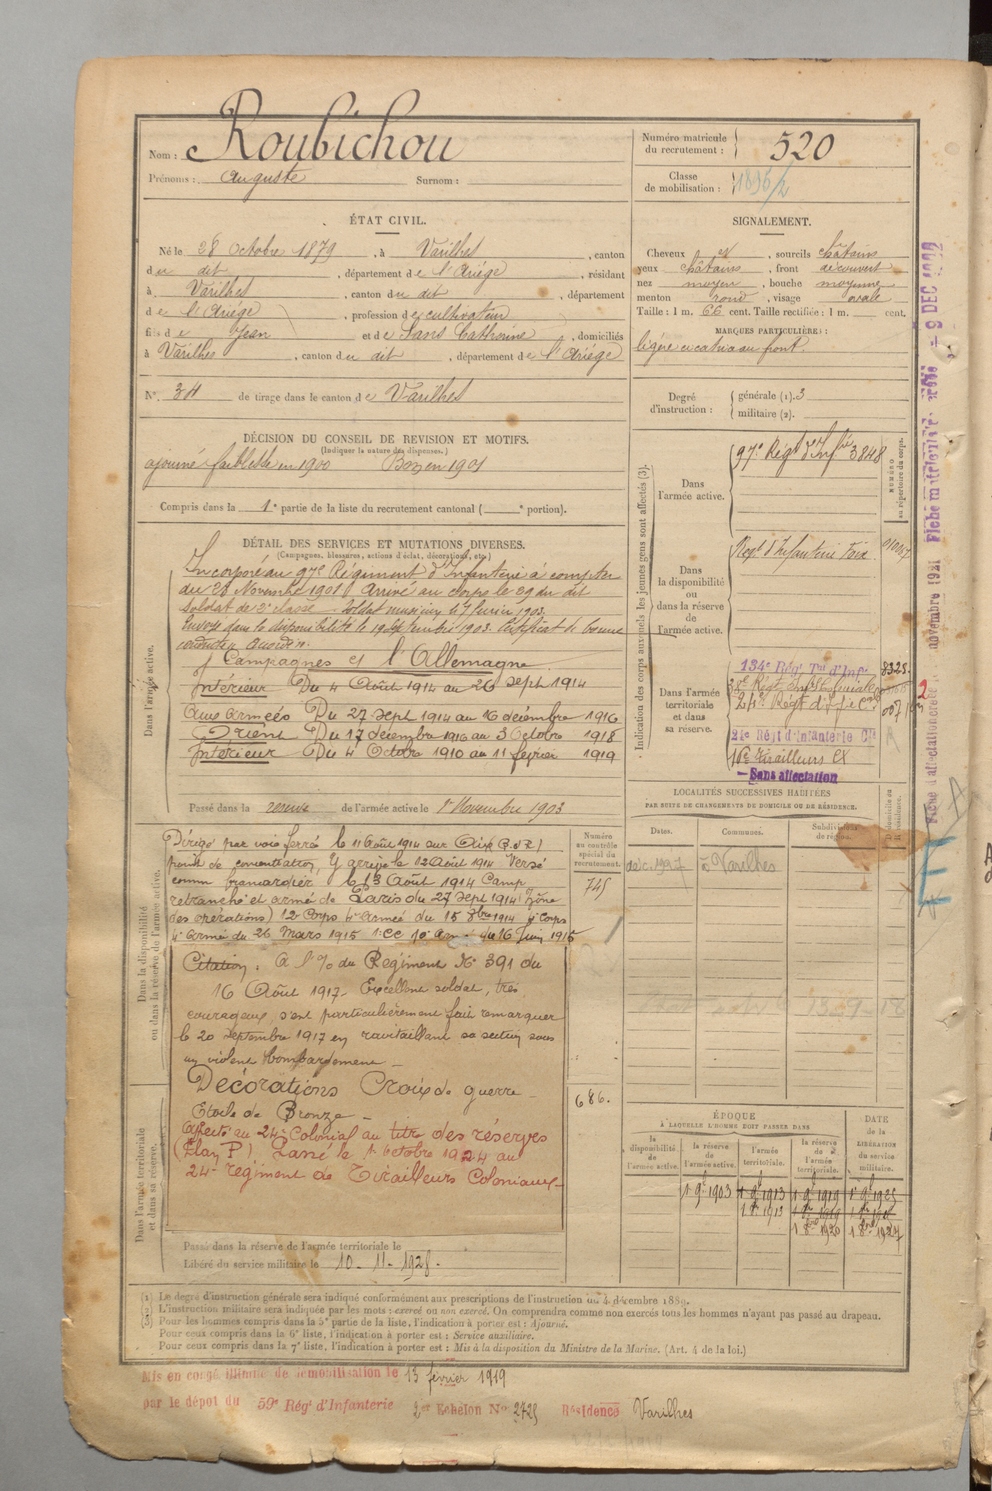 Nom : Roubichou
Prénoms : Auguste Surnom :
Numéro matricule
du recrutement : 520
Classe
de mobilisation : 1896/2
ÉTAT CIVIL.
Né le 28 Octobre 1879, à Varilhes, canton
du dit, département de l'Ariége, résidant
à Varilhes, canton du dit, département
de l'Ariége, profession de cultivateur
fils de Jean et de Sans Catherine, domiciliés
à Varilhes, canton du dit, département de l'Ariége
N° 34 de tirage dans le canton de Varilhes
SIGNALEMENT.
Cheveux et, sourcils châtains
yeux châtains, front découvert
nez moyen, bouche moyenne
menton rond, visage ovale
Taille : 1 m. 66 cent. Taille rectifiée : 1 m. cent.
MARQUES PARTICULIÈRES :
légère cicatrice au front.
Degré
d'instruction :
générale (1). 3
militaire (2).
DÉCISION DU CONSEIL DE REVISION ET MOTIFS.
(Indiquer la nature des dispenses.)
ajourné faiblesse en 1900 Bon en 1901
Compris dans la 1e partie de la liste du recrutement cantonal ( e portion).
DÉTAIL DES SERVICES ET MUTATIONS DIVERSES.
(Campagnes, blessures, actions d'éclat, décorations, etc.)
Dans l'armée active.
Incorporé au 97e Régiment d'Infanterie à compter
du 28 Novembre 1901 Arrivé au corps le 29 du dit
Soldat de 2e classe. Soldat musicien le 7 février 1903.
Envoyé dans la disponibilité le 19 Septembre 1903. Certificat de bonne
conduite Accordé.
Campagnes ct l'Allemagne
Intérieur Du 4 Août 1914 au 26 sept 1914
Aux Armées Du 27 sept 1914 au 16 décembre 1916
Orient Du 17 décembre 1916 au 3 Octobre 1918
Intérieur Du 4 Octobre 1910 au 11 février 1919
Passé dans la réserve de l'armée active le 1er Novembre 1903
Dans la disponibilité
ou dans la réserve de l'armée active.
Dirigé par voie ferrée le 11 Août 1914 sur Aix
point de concentration. Y arrivé le 12 Août 1914 Versé
comme brancardier le 13 Août 1914 Camp
retranché et armé de Paris du 27 sept 1914 (Zône
des opérations) 12 Corps 4e Armée du 15 9bre 1914 4e Corps
4e Armée du 26 Mars 1915 1. CC 10e Ar. du 16 Juin 1915
Numéro
au contrôle
spécial du
recrutement.
745
686.
Citation. A l'% du Régiment N° 391 du
16 Août 1917 - Excellent soldat, très
courageux, s'est particulièrement fait remarquer
le 20 septembre 1917 en ravitaillant sa section sous
un violent bombardement
Décorations Croix de guerre
Etoile de Bronze -
Affecté au 24e Colonial au titre des réserves
(Plan P) Passé le 1er Octobre 1924 au
24e régiment de Tirailleurs Coloniaux
Dans l'armée territoriale
et dans sa réserve.
Passé dans la réserve de l'armée territoriale le
Libéré du service militaire le 10 - 11 - 1928 -
Indication des corps auxquels les jeunes gens sont affectés (3).
NUMÉRO
au répertoire du corps.
Dans
l'armée active.
97e Régt d'Inf ie 3848
Dans
la disponibilité
ou
dans la réserve
de
l'armée active.
Régt d'Infanterie Foix
Dans l'armée
territoriale
et dans
sa réserve.
134e Régt Tal d'Inf 8325.
24e Régt d'if ie Cle
24e Régt d'Infanterie Cle
16e Tirailleurs CX
— Sans affectation
LOCALITÉS SUCCESSIVES HABITÉES
PAR SUITE DE CHANGEMENTS DE DOMICILE OU DE RÉSIDENCE.
Dates. Communes. Subdivisions
de région.
déc. 1927 à Varilhes
ÉPOQUE
À LAQUELLE L'HOMME DOIT PASSER DANS
la
disponibilité
de
l'armée active.
la réserve
de
l'armée active.
l'armée
territoriale.
la réserve
de
l'armée
territoriale.
DATE
de la
LIBÉRATION
du service
militaire.
1 9e 1903 1 9e 1913 1 9e 1919 1 9e 1925
(1) Le degré d'instruction générale sera indiqué conformément aux prescriptions de l'instruction du 4 décembre 1889.
(2) L'instruction militaire sera indiquée par les mots : exercé ou non exercé. On comprendra comme non exercés tous les hommes n'ayant pas passé au drapeau.
(3) Pour les hommes compris dans la 5e partie de la liste, l'indication à porter est : Ajourné.
Pour ceux compris dans la 6e liste, l'indication à porter est : Service auxiliaire.
Pour ceux compris dans la 7e liste, l'indication à porter est : Mis à la disposition du Ministre de la Marine. (Art. 4 de la loi.)
Mis en congé illimité de démobilisation le 13 février 1919
par le dépôt du 59e Régt d'Infanterie 2er Echelon No 2725 Résidence Varilhes